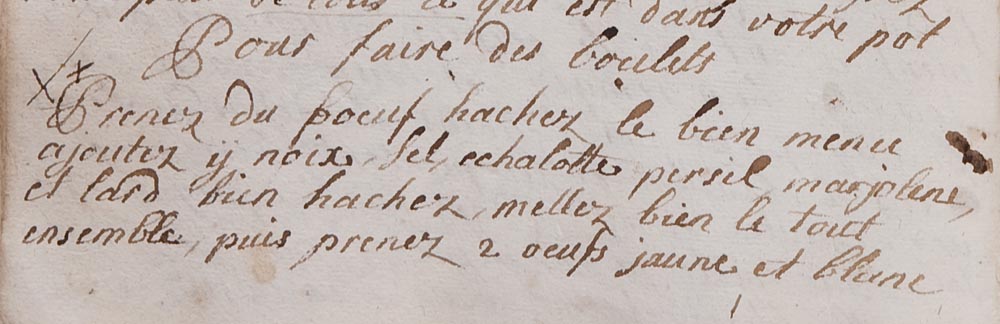 de tous ce qui est dans votre pot
Pour faire des boulets
Prenez du boeuf hachez le bien menu
ajoutez ÿ noix, sel, echalotte persil, marjolene,
et lard bien hachez, mellez bien le tout
ensemble, puis prenez 2 oeufs jaune et blanc